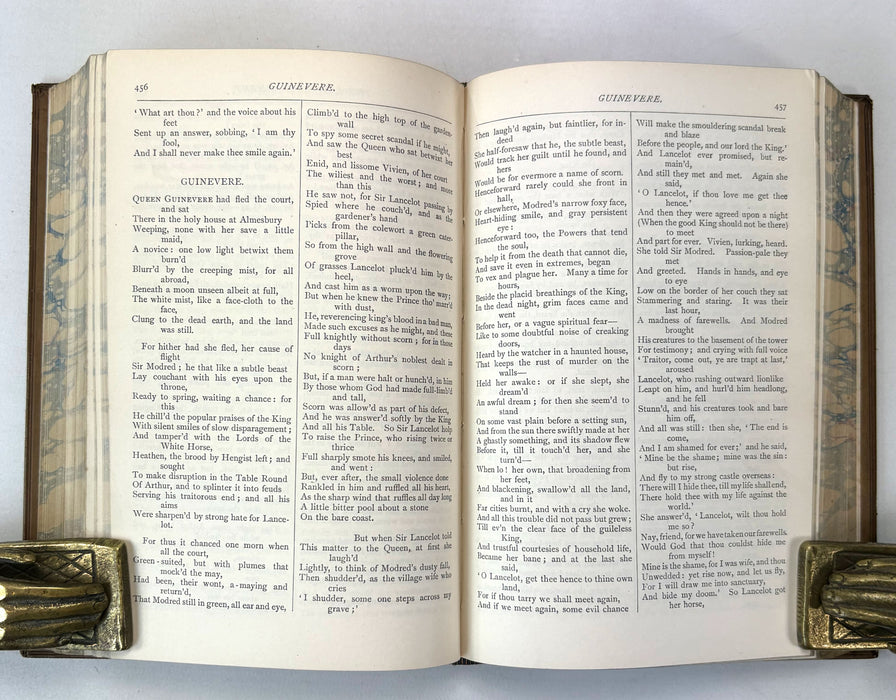 456
GUINEVERE.
‘ What art thou?’ and the voice about his
feet
Sent up an answer, sobbing, ‘ I am thy
fool,
And I shall never make thee smile again.’
GUINEVERE.
QUEEN GUINEVERE had fled the court,
and sat
There in the holy house at Almesbury
Weeping, none with her save a little
maid,
A novice : one low light betwixt them
burn’d
Blurr’d by the creeping mist, for all
abroad,
Beneath a moon unseen albeit at full,
The white mist, like a face-cloth to the
face,
Clung to the dead earth, and the land
was still.
For hither had she fled, her cause of
flight
Sir Modred ; he that like a subtle beast
Lay couchant with his eyes upon the
throne,
Ready to spring, waiting a chance : for
this
He chill’d the popular praises of the King
With silent smiles of slow disparagement ;
And tamper’d with the Lords of the
White Horse,
Heathen, the brood by Hengist left ; and
sought
To make disruption in the Table Round
Of Arthur, and to splinter it into feuds
Serving his traitorous end ; and all his
aims
Were sharpen’d by strong hate for Lance-
lot.
For thus it chanced one morn when
all the court,
Green-suited, but with plumes that
mock’d the may,
Had been, their wont, a-maying and
return’d,
That Modred still in green, all ear and eye,
Climb’d to the high top of the garden-
wall
To spy some secret scandal if he might,
And saw the Queen who sat betwixt her
best
Enid, and lissome Vivien, of her court
The wiliest and the worst ; and more
than this
He saw not, for Sir Lancelot passing by
Spied where he couch’d, and as the
gardener’s hand
Picks from the colewort a green cater-
pillar,
So from the high wall and the flowering
grove
Of grasses Lancelot pluck’d him by the
heel,
And cast him as a worm upon the way ;
But when he knew the Prince tho’ marr’d
with dust,
He, reverencing king’s blood in a bad man,
Made such excuses as he might, and these
Full knightly without scorn ; for in those
days
No knight of Arthur’s noblest dealt in
scorn ;
But, if a man were halt or hunch’d, in him
By those whom God had made full-limb’d
and tall,
Scorn was allow’d as part of his defect,
And he was answer’d softly by the King
And all his Table. So Sir Lancelot holp
To raise the Prince, who rising twice or
thrice
Full sharply smote his knees, and smiled,
and went :
But, ever after, the small violence done
Rankled in him and ruffled all his heart,
As the sharp wind that ruffles all day long
A little bitter pool about a stone
On the bare coast.
But when Sir Lancelot told
This matter to the Queen, at first she
laugh’d
Lightly, to think of Modred’s dusty fall,
Then shudder’d, as the village wife who
cries
‘ I shudder, some one steps across my
grave ;’
GUINEVERE.
457
Then laugh’d again, but faintlier, for in-
deed
She half-foresaw that he, the subtle beast,
Would track her guilt until he found, and
hers
Would be for evermore a name of scorn.
Henceforward rarely could she front in
hall,
Or elsewhere, Modred’s narrow foxy face,
Heart-hiding smile, and gray persistent
eye :
Henceforward too, the Powers that tend
the soul,
To help it from the death that cannot die,
And save it even in extremes, began
To vex and plague her. Many a time for
hours,
Beside the placid breathings of the King,
In the dead night, grim faces came and
went
Before her, or a vague spiritual fear—
Like to some doubtful noise of creaking
doors,
Heard by the watcher in a haunted house,
That keeps the rust of murder on the
walls—
Held her awake : or if she slept, she
dream’d
An awful dream ; for then she seem’d to
stand
On some vast plain before a setting sun,
And from the sun there swiftly made at her
A ghastly something, and its shadow flew
Before it, till it touch’d her, and she
turn’d—
When lo ! her own, that broadening from
her feet,
And blackening, swallow’d all the land,
and in it
Far cities burnt, and with a cry she woke.
And all this trouble did not pass but grew ;
Till ev’n the clear face of the guileless
King,
And trustful courtesies of household life,
Became her bane ; and at the last she
said,
‘ O Lancelot, get thee hence to thine own
land,
For if thou tarry we shall meet again,
And if we meet again, some evil chance
Will make the smouldering scandal break
and blaze
Before the people, and our lord the King.’
And Lancelot ever promised, but re-
main’d,
And still they met and met. Again she
said,
‘ O Lancelot, if thou love me get thee
hence.’
And then they were agreed upon a night
(When the good King should not be there)
to meet
And part for ever. Vivien, lurking, heard.
She told Sir Modred. Passion-pale they
met
And greeted. Hands in hands, and eye
to eye
Low on the border of her couch they sat
Stammering and staring. It was their
last hour,
A madness of farewells. And Modred
brought
His creatures to the basement of the tower
For testimony ; and crying with full voice
‘ Traitor, come out, ye are trapt at last,’
aroused
Lancelot, who rushing outward lionlike
Leapt on him, and hurl’d him headlong,
and he fell
Stunn’d, and his creatures took and bare
him off,
And all was still : then she, ‘ The end is
come,
And I am shamed for ever ;’ and he said,
‘ Mine be the shame ; mine was the sin :
but rise,
And fly to my strong castle overseas :
There will I hide thee, till my life shall end,
There hold thee with my life against the
world.’
She answer’d, ‘ Lancelot, wilt thou hold
me so ?
Nay, friend, for we have taken our farewells.
Would God that thou couldst hide me
from myself !
Mine is the shame, for I was wife, and thou
Unwedded : yet rise now, and let us fly,
For I will draw me into sanctuary,
And bide my doom.’ So Lancelot got
her horse,